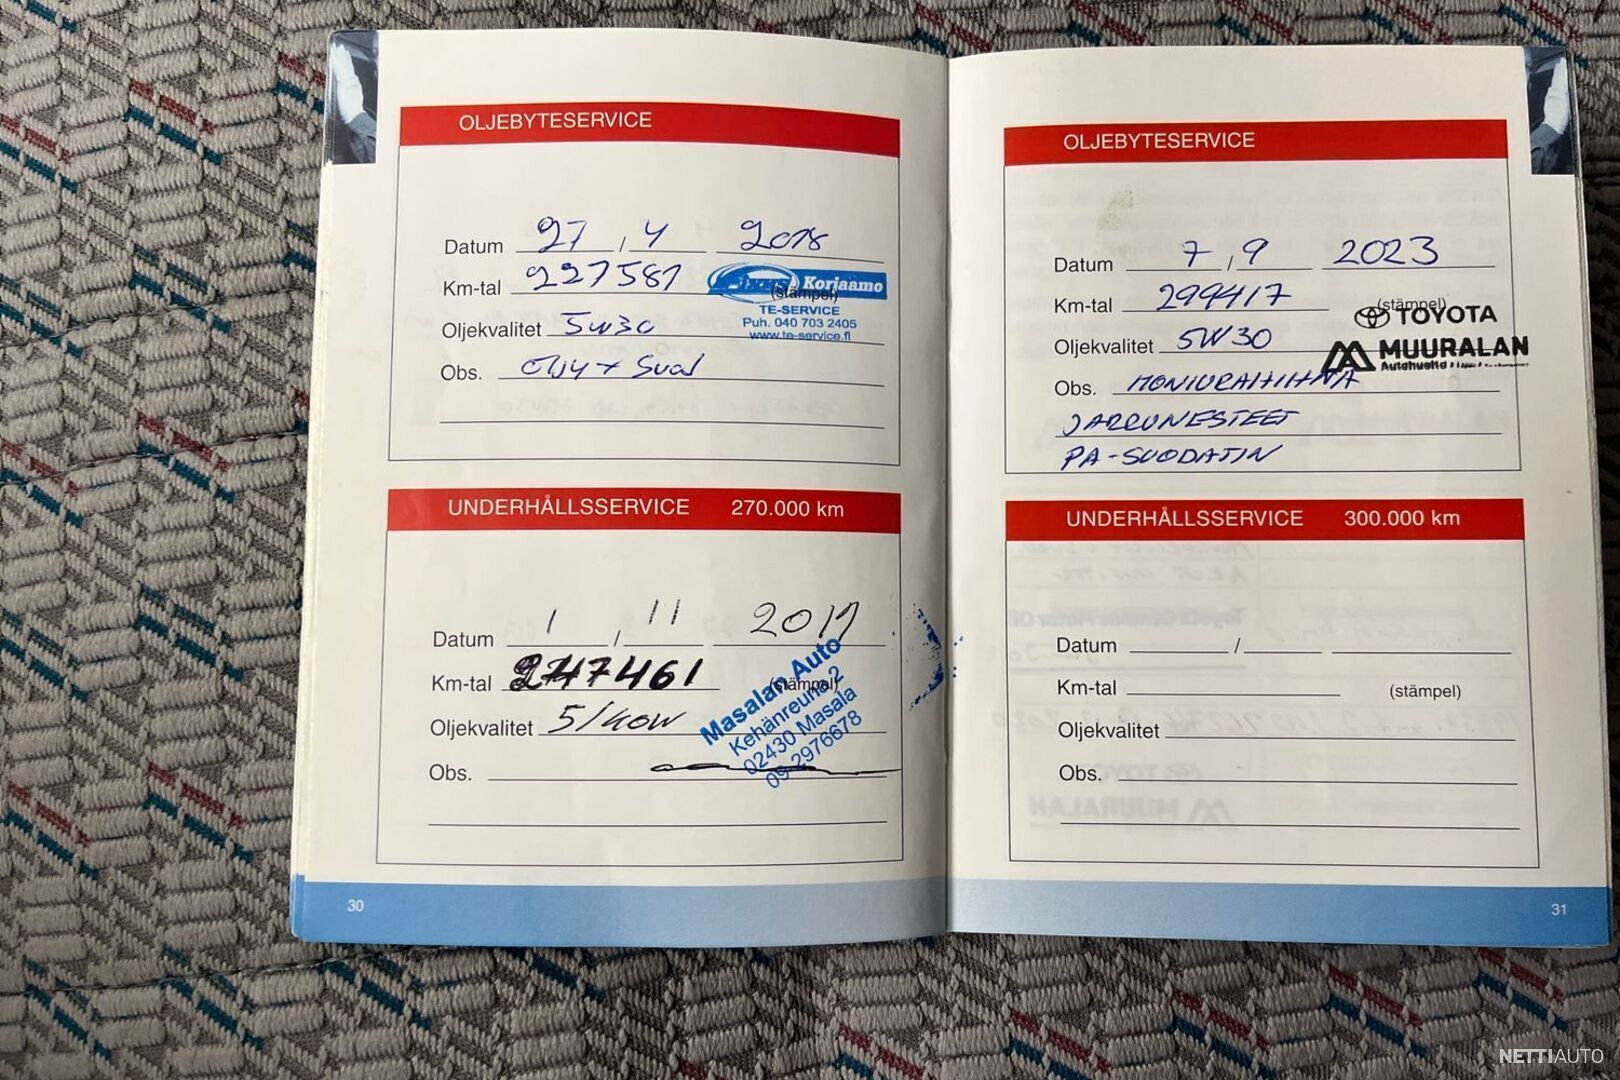 OLJEBYTESERVICE
Datum 27 / 4 2018
Km-tal 227581
Korjaamo
(stämpel)
TE-SERVICE
Puh. 040 703 2405
www.te-service.fi
Oljekvalitet 5W30
Obs. Öljy + Suod
UNDERHÅLLSSERVICE 270.000 km
Datum 1 / 11 2017
Km-tal 247461
(stämpel)
Masalan Auto
Kehänreuna 2
02430 Masala
09-2976678
Oljekvalitet 5/40W
Obs.
30
OLJEBYTESERVICE
Datum 7 / 9 2023
Km-tal 299417
(stämpel)
TOYOTA
MUURALAN
Oljekvalitet 5W30
Obs. MONIURAHIHNA
JARRUNESTEET
PA-SUODATIN
UNDERHÅLLSSERVICE 300.000 km
Datum /
Km-tal
(stämpel)
Oljekvalitet
Obs.
31
NETTIAUTO